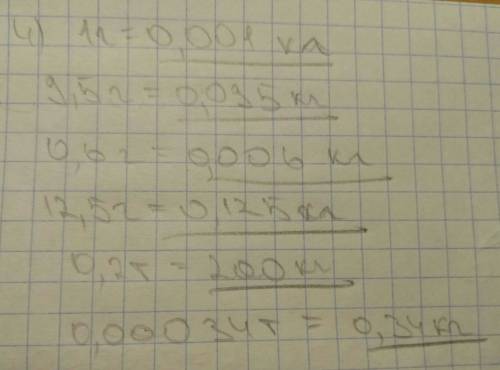 4) 1г = 0,001 кг
9,5г = 0,095 кг
0,6г = 0,006 кг
12,5г = 0,125кг
0,2т = 200кг
0,00034т = 0,34кг